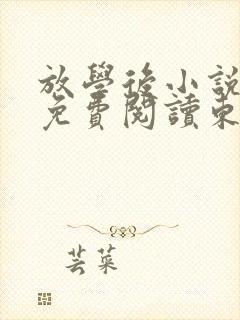 放學後小說
免費閱讀東
芸菜